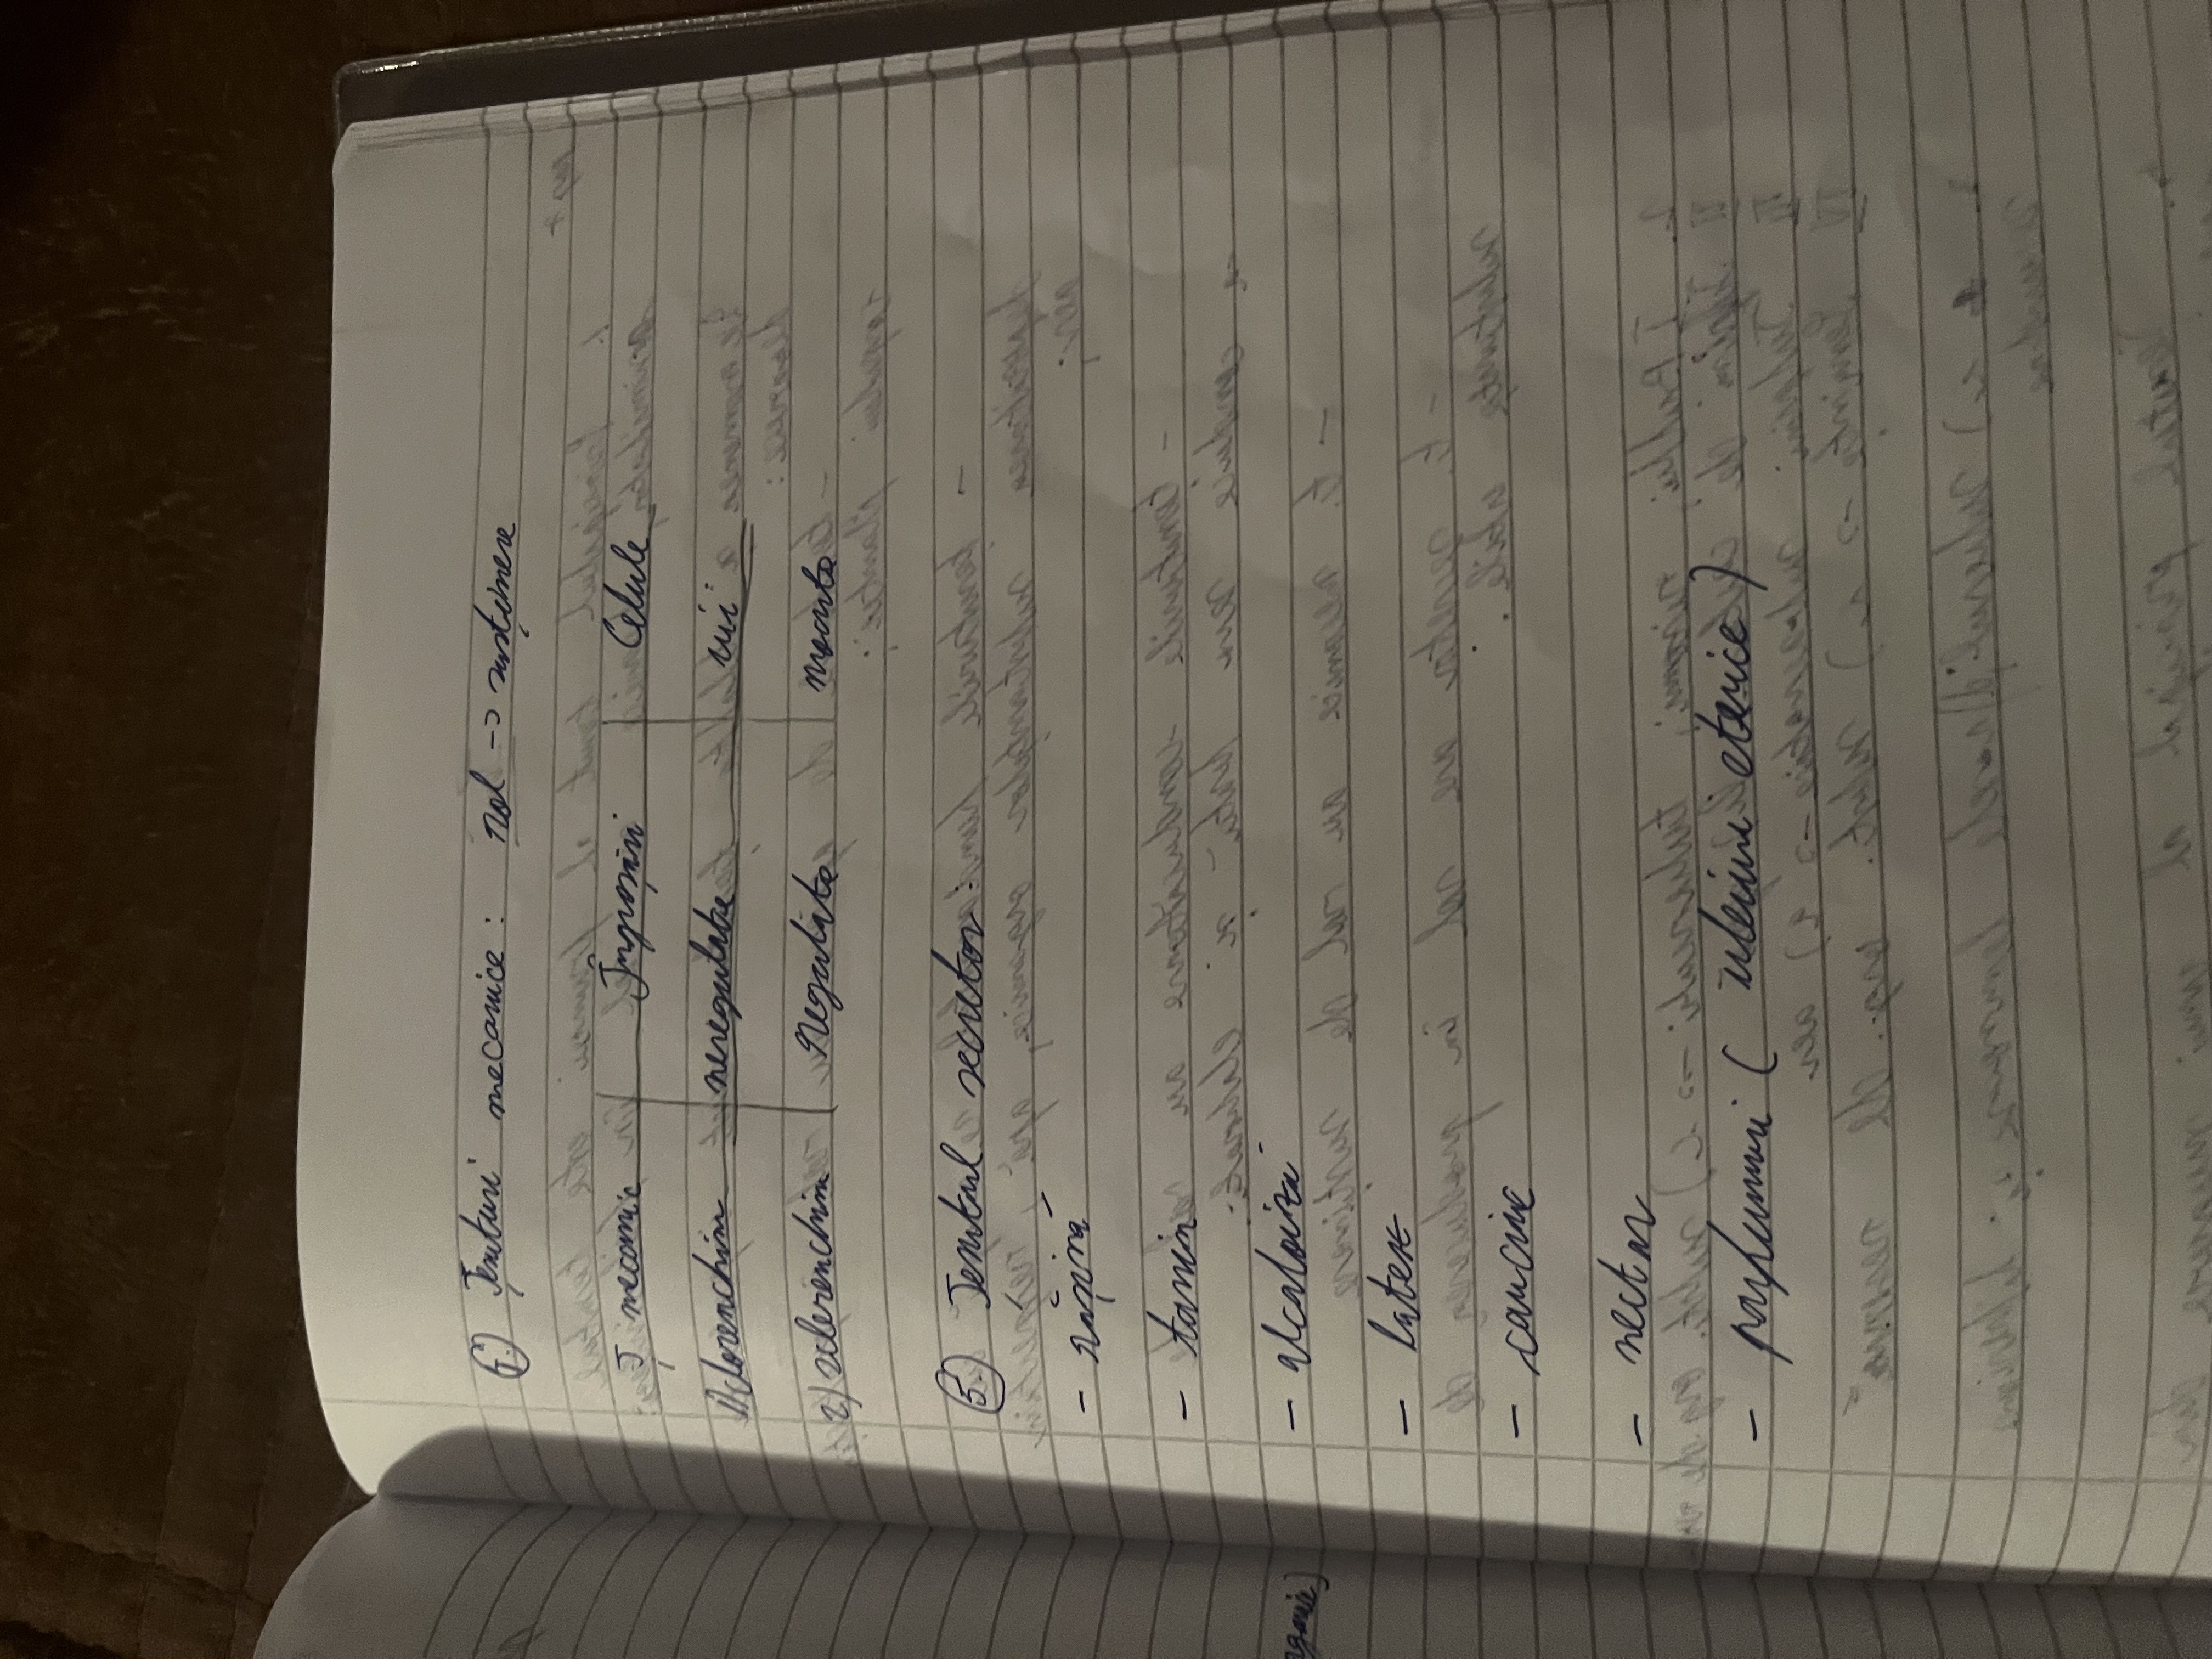 4.) Țesuturi mecanice: Rol -> susținere
Ț mecanic Îngroșări Celule
1) colenchim neregulate vii
2) sclerenchim Regulate moarte
5.) Țesutul secretor:
- rășină
- tanin
- alcaloizi
- latex
- cauciuc
- nectar
- parfumuri ( uleiuri eterice)